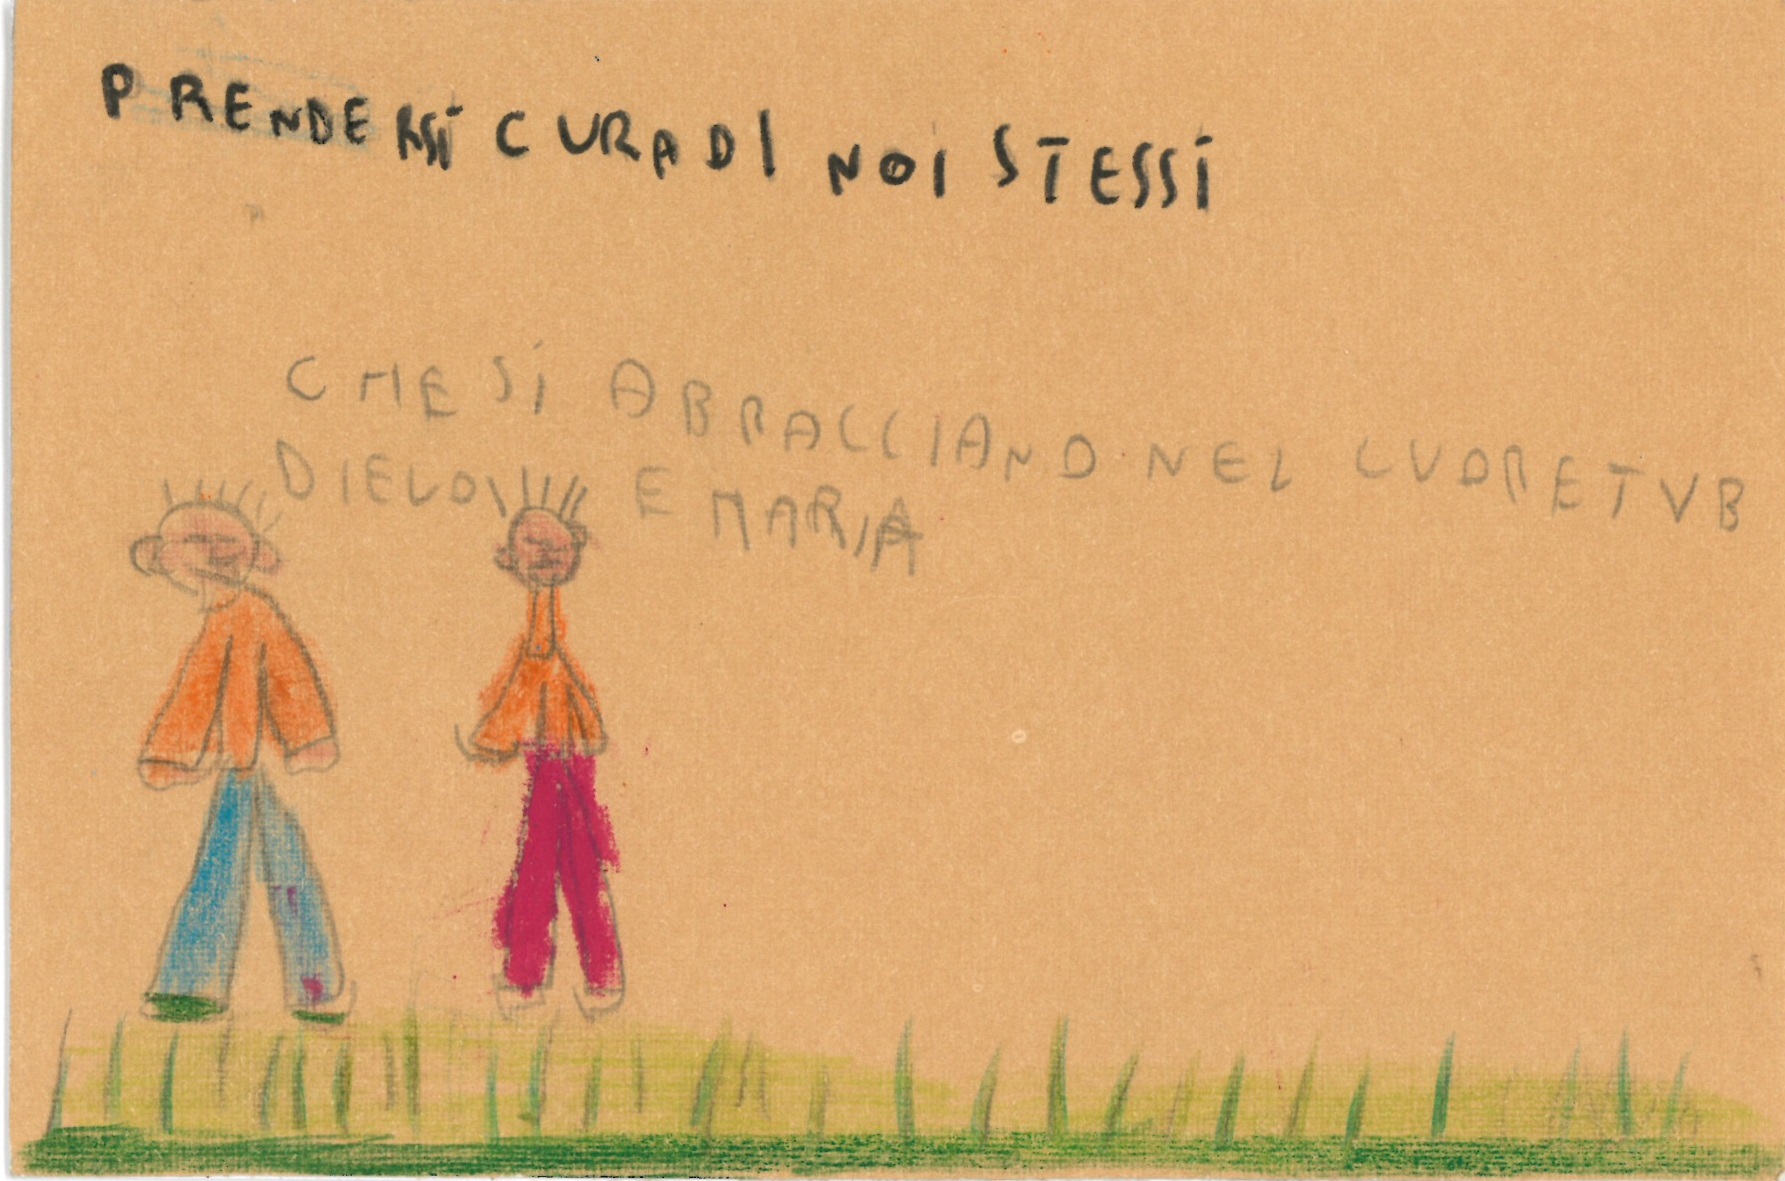 PRENDERSI CURA DI NOI STESSI
CHE SI ABRACCIANO NEL CUORE TVB
E MARIA